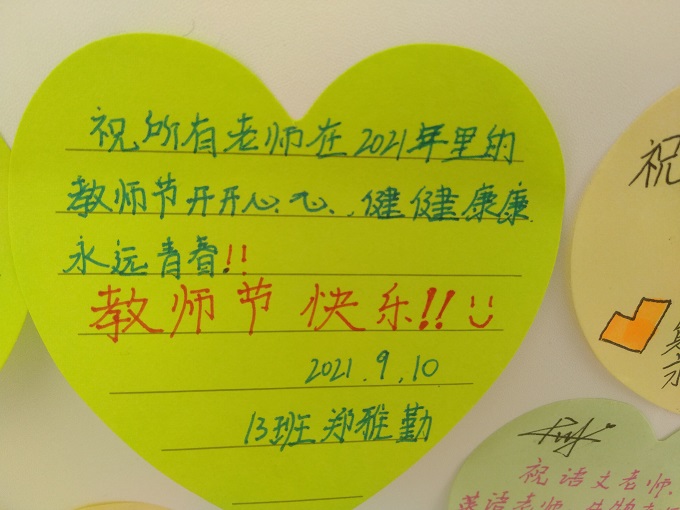 祝所有老师在2021年里的
教师节开开心心、健健康康
永远青春!!
教师节 快乐!!
2021.9.10
13班 郑雅勤
祝
祝语文老师
英语老师